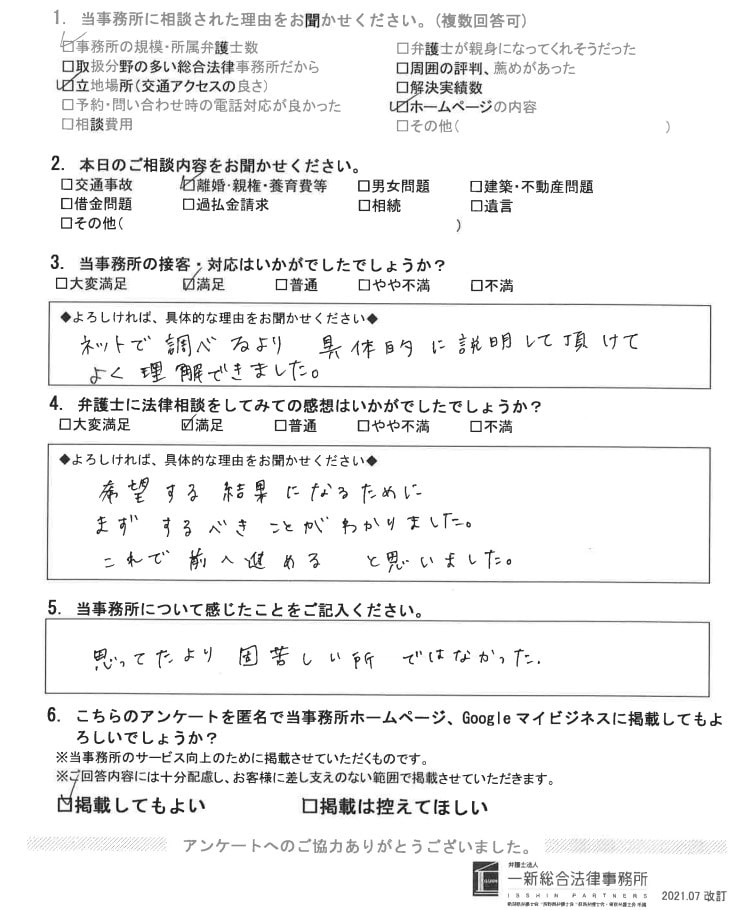 1. 当事務所に相談された理由をお聞かせください。(複数回答可)
☑事務所の規模・所属弁護士数 □弁護士が親身になってくれそうだった
□取扱分野の多い総合法律事務所だから □周囲の評判、薦めがあった
☑立地場所(交通アクセスの良さ) □解決実績数
□予約・問い合わせ時の電話対応が良かった ☑ホームページの内容
□相談費用 □その他( )
2. 本日のご相談内容をお聞かせください。
□交通事故 ☑離婚・親権・養育費等 □男女問題 □建築・不動産問題
□借金問題 □過払金請求 □相続 □遺言
□その他( )
3. 当事務所の接客・対応はいかがでしたでしょうか？
□大変満足 ☑満足 □普通 □やや不満 □不満
◆よろしければ、具体的な理由をお聞かせください◆
ネットで調べるより 具体的に説明して頂けて
よく理解できました。
4. 弁護士に法律相談をしてみての感想はいかがでしたでしょうか？
□大変満足 ☑満足 □普通 □やや不満 □不満
◆よろしければ、具体的な理由をお聞かせください◆
希望する結果になるために
まずするべきことがわかりました。
これで前へ進める と思いました。
5. 当事務所について感じたことをご記入ください。
思ってたより固苦しい所ではなかった.
6. こちらのアンケートを匿名で当事務所ホームページ、Googleマイビジネスに掲載してもよ
ろしいでしょうか？
※当事務所のサービス向上のために掲載させていただくものです。
※ご回答内容には十分配慮し、お客様に差し支えのない範囲で掲載させていただきます。
☑掲載してもよい □掲載は控えてほしい
アンケートへのご協力ありがとうございました。
弁護士法人
一新総合法律事務所
ISSHIN PARTNERS
2021.07 改訂